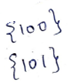 {100}
{101}